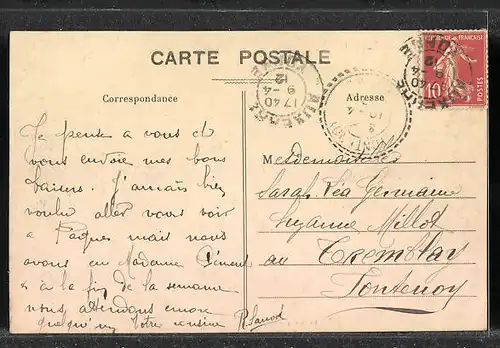 CARTE POSTALE
Correspondance
Adresse
Je pense a vous et
vous envoie mes bons
baisers. J'aimais bien
voulu aller vous voir
a Pâques mais nous
avons eu Madame
a la fin de la semaine
nous attendons mon
quelqu'un Votre cousine
R. Sarrod
Mesdemoiselles
Sarah Léa Germaine
Suzanne Millot
au Tremblay
Fontenoy
AUXERRE
17 40
9 -4
12
YONNE
FRANÇAISE
POSTES
10